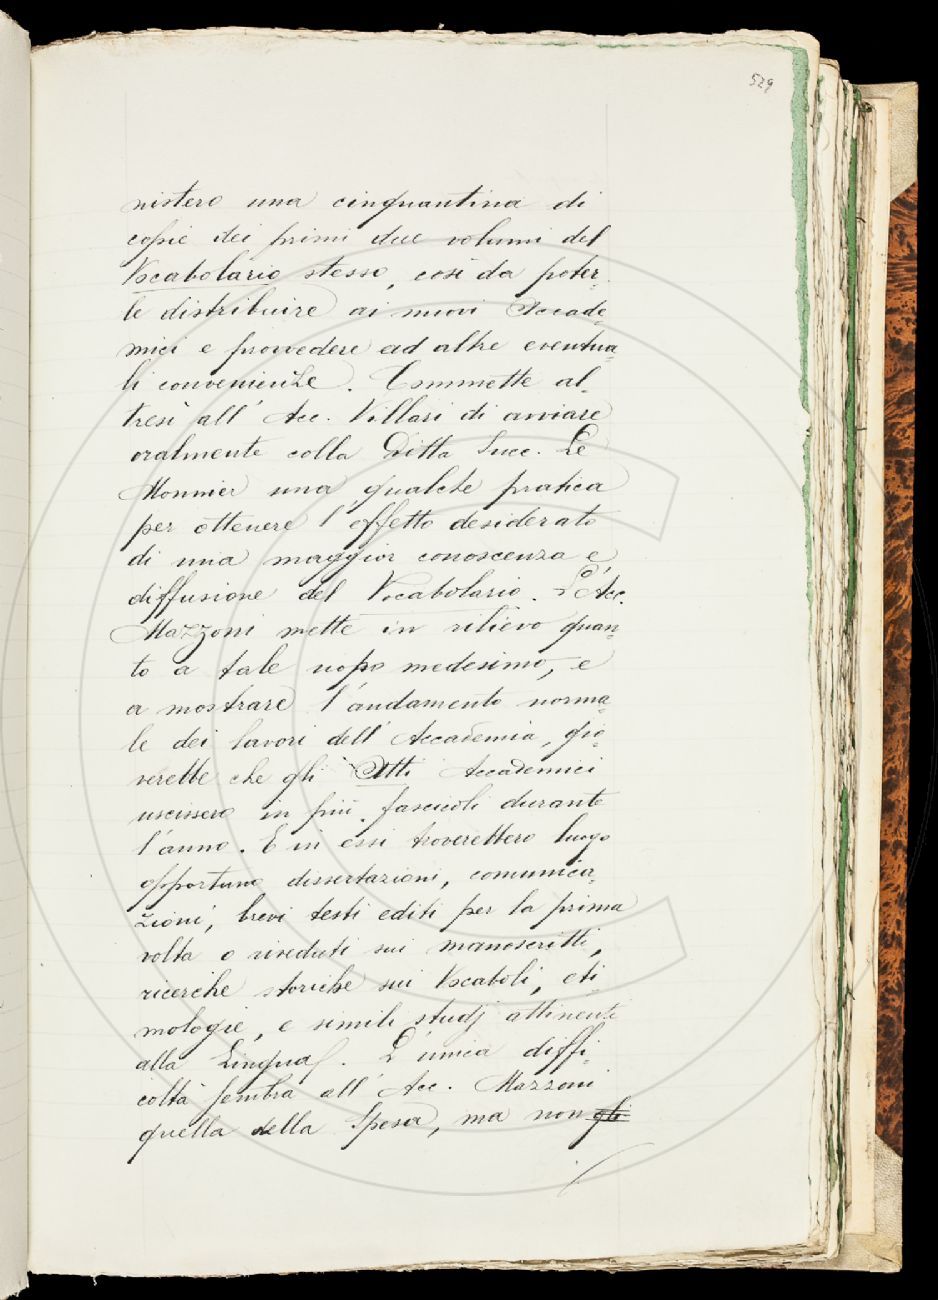 529
nistero una cinquantina di
copie dei primi due volumi del
Vocabolario stesso, così da poter-
le distribuire ai nuovi Accade-
mici e provvedere ad altre eventua-
li convenienze. Commette al-
tresì all' Acc. Villari di avviare
oralmente colla Ditta Succ. Le
Monnier una qualche pratica
per ottenere l'effetto desiderato
di una maggior conoscenza e
diffusione del Vocabolario. L'Acc.
Mazzoni mette in rilievo quan-
to a tale uopo medesimo, e
a mostrare l'andamento norma-
le dei lavori dell' Accademia, gio-
verebbe che gli Atti Accademici
uscissero in più fascicoli durante
l'anno. E in essi troverebbero luogo
opportuno dissertazioni, comunica-
zioni, brevi testi editi per la prima
volta o riveduti sui manoscritti,
ricerche storiche sui Vocaboli, eti-
mologie, e simili studj attinenti
alla Lingua. L'unica diffi-
coltà sembra all' Acc. Mazzoni
quella della Spesa, ma non gli